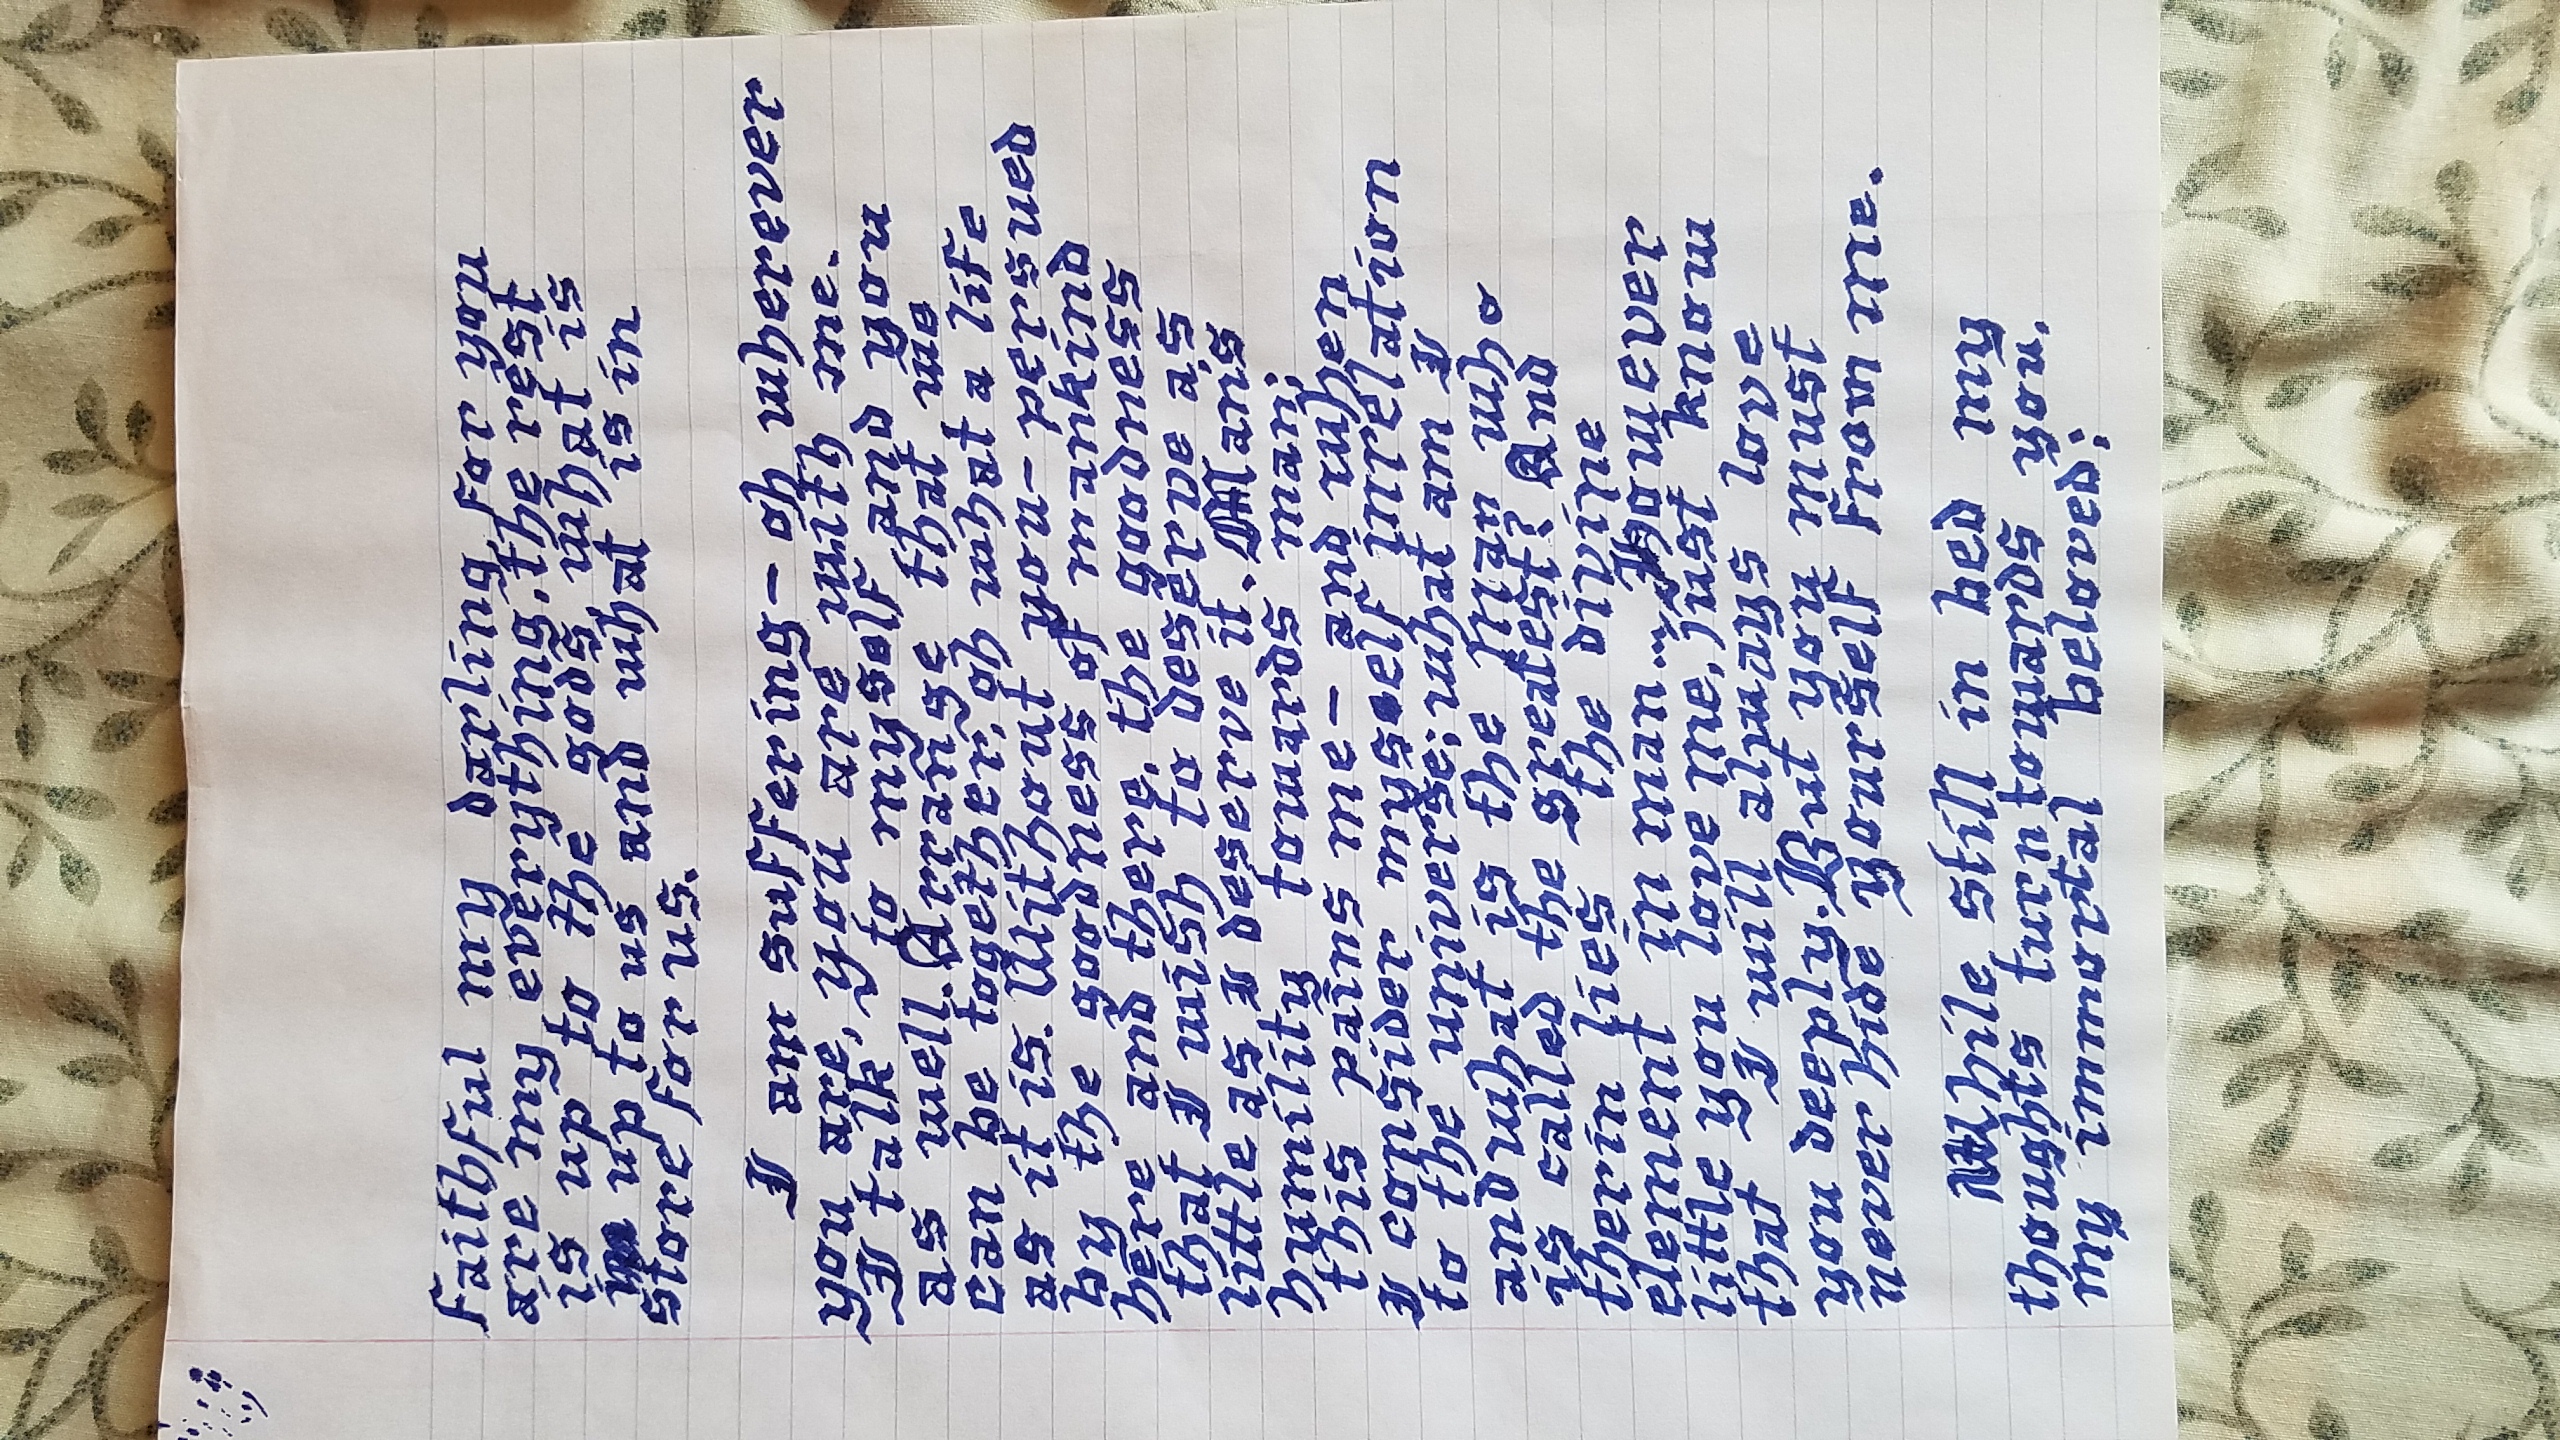 faithful my darling, for you
are my everything, the rest
is up to the gods, what is
up to us and what is in
store for us.
I am suffering - oh wherever
you are, you are with me.
I talk to myself and you
as well. Arrange that we
can be together, oh what a life
as it is. Without you - persued
by the goodness of mankind
here and there, the goodness
that I wish to deserve as
little as I deserve it. Man's
humility towards man;
this pains me - and when
I consider myself inrelation
to the universe; what am I
and what is the Man who
is called the greatest? And
therin lies the divine
element in man... However
little you love me, just know
that I will always love
you deeply. But you must
never hide yourself from me.
While still in bed my
thoughts turn towards you,
my immortal beloved;